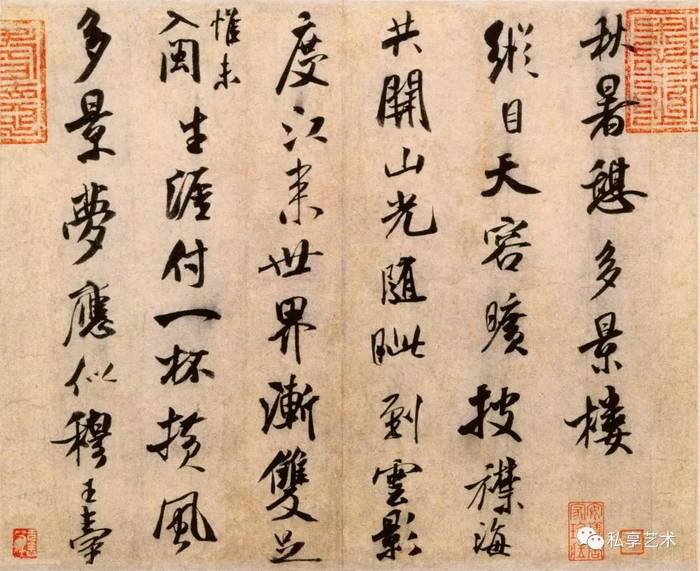 秋暑憩多景樓
縱目天容曠披襟海
共開山光隨眦到雲影
度江来世界漸雙足
惟未
入閩生涯付一杯横風
多景夢應似穆王臺
私享艺术